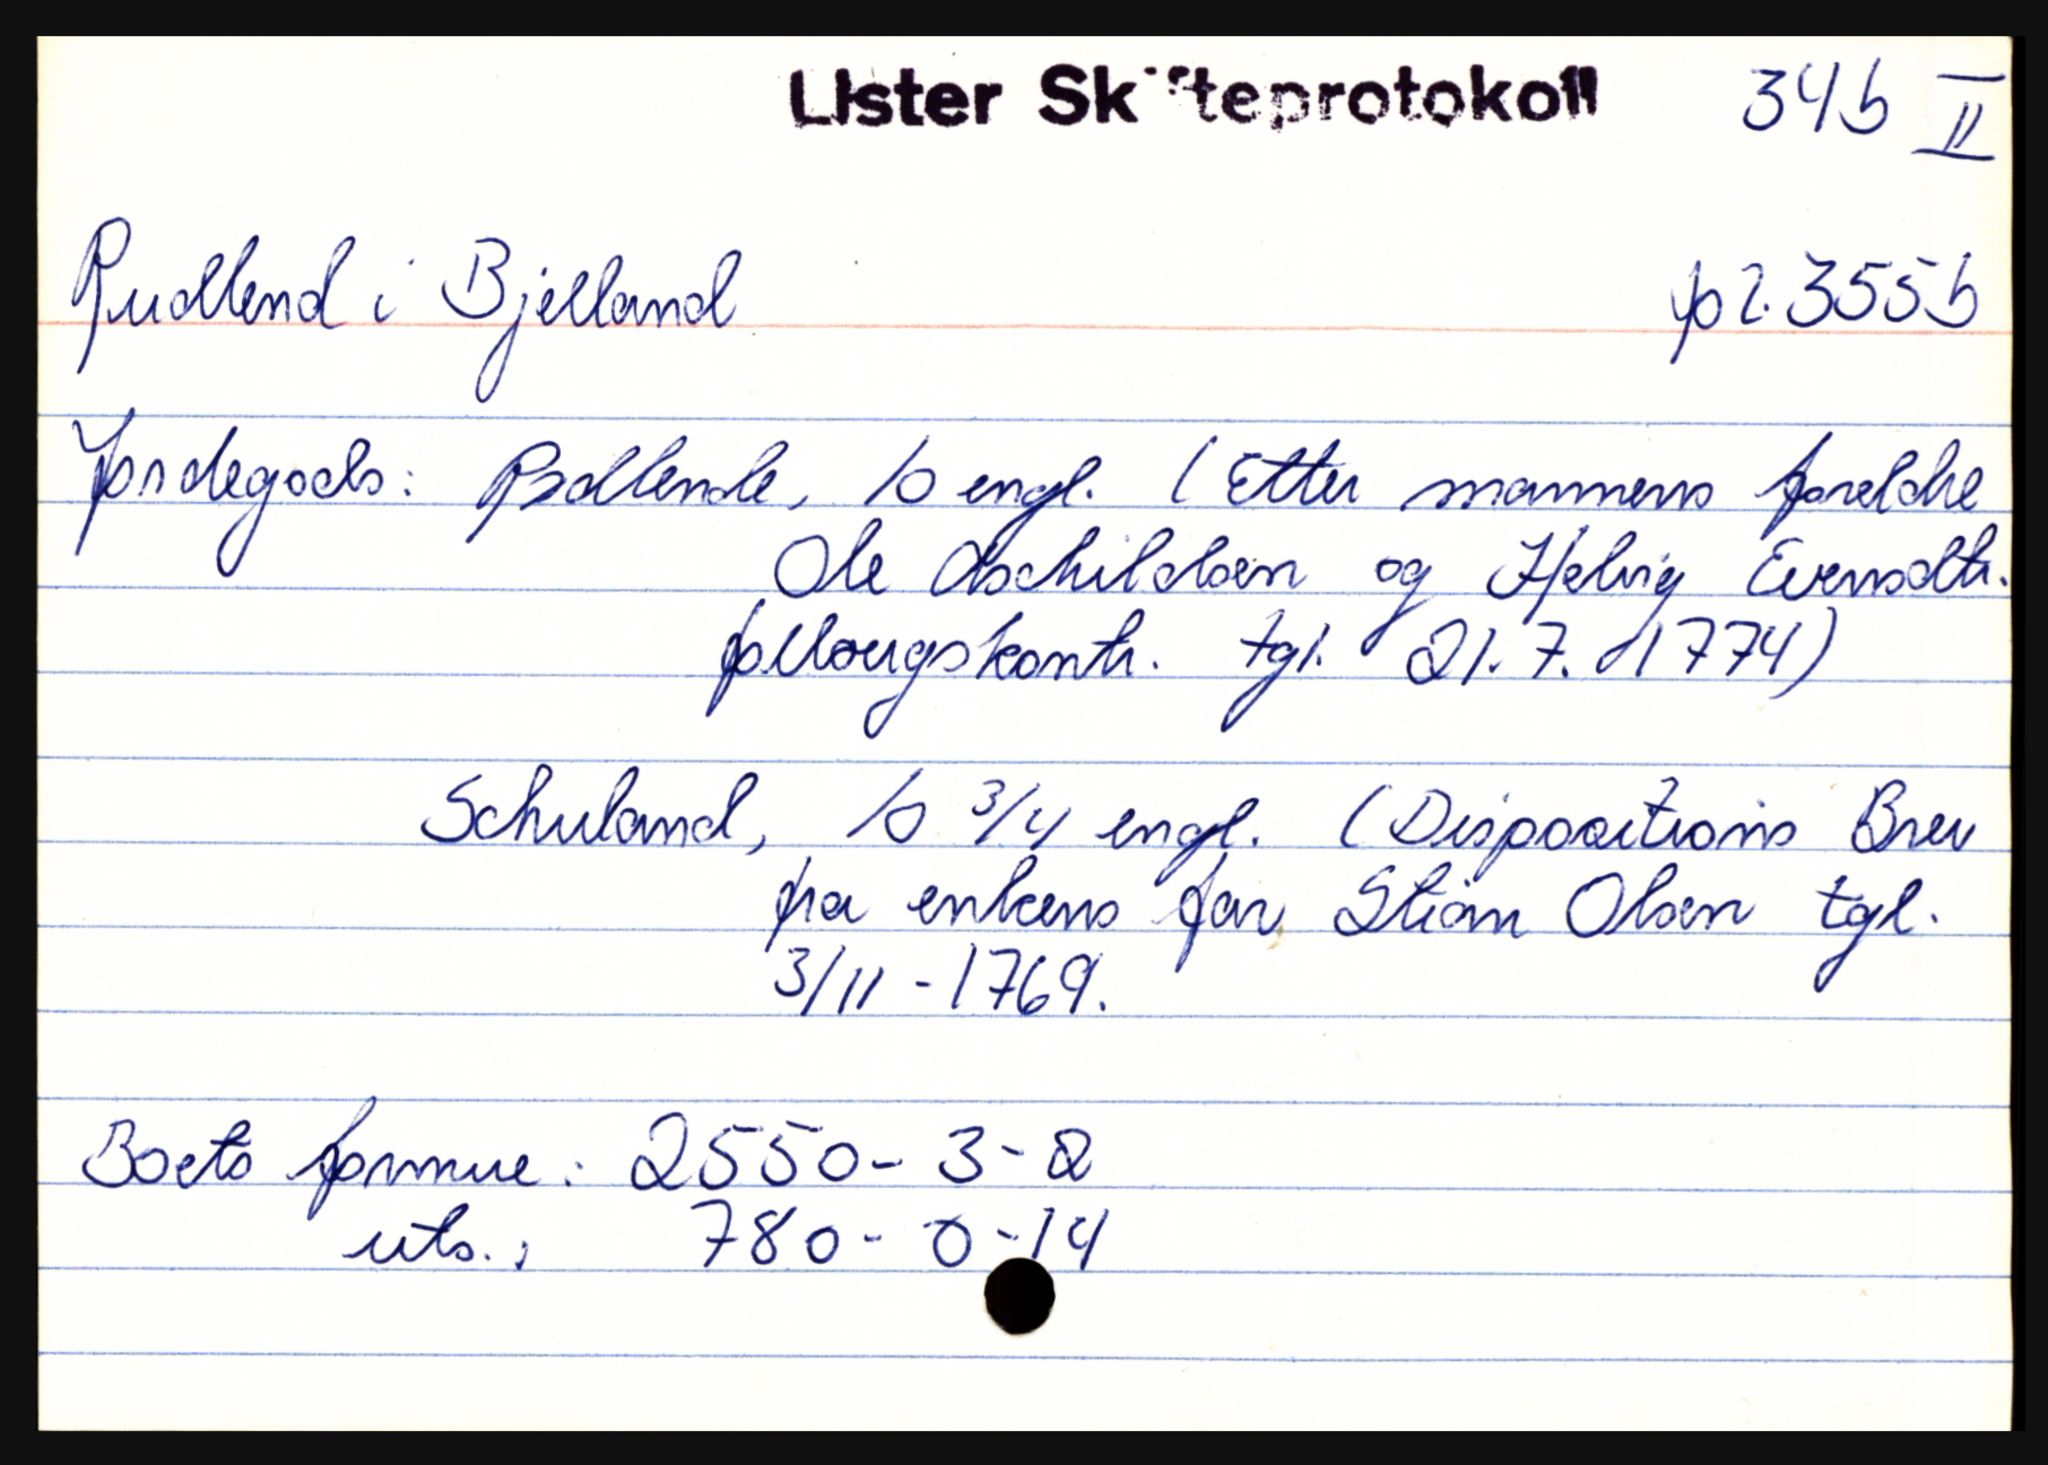 Lister Skifteprotokoll 34b II
Rudlend i Bjelland fol. 355b
Jordegods: Rodlende, 1b engl. (Etter mannens foreldre
Ole Aschildsen og Helvig Evensdtr.
follougskontr. tgl. 21.7.1774)
Schuland, 1b 3/4 engl. (Dispositions Brev
fra enkens far Stian Olsen tgl.
3/11-1769.
Boets formue: 2550-3-2
uts.: 780-0-14